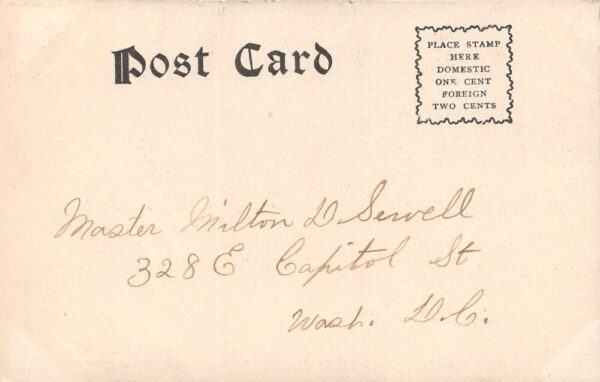 Post Card
PLACE STAMP
HERE
DOMESTIC
ONE CENT
FOREIGN
TWO CENTS
Master Milton D Sewell
328 E Capitol St
Wash. D.C.